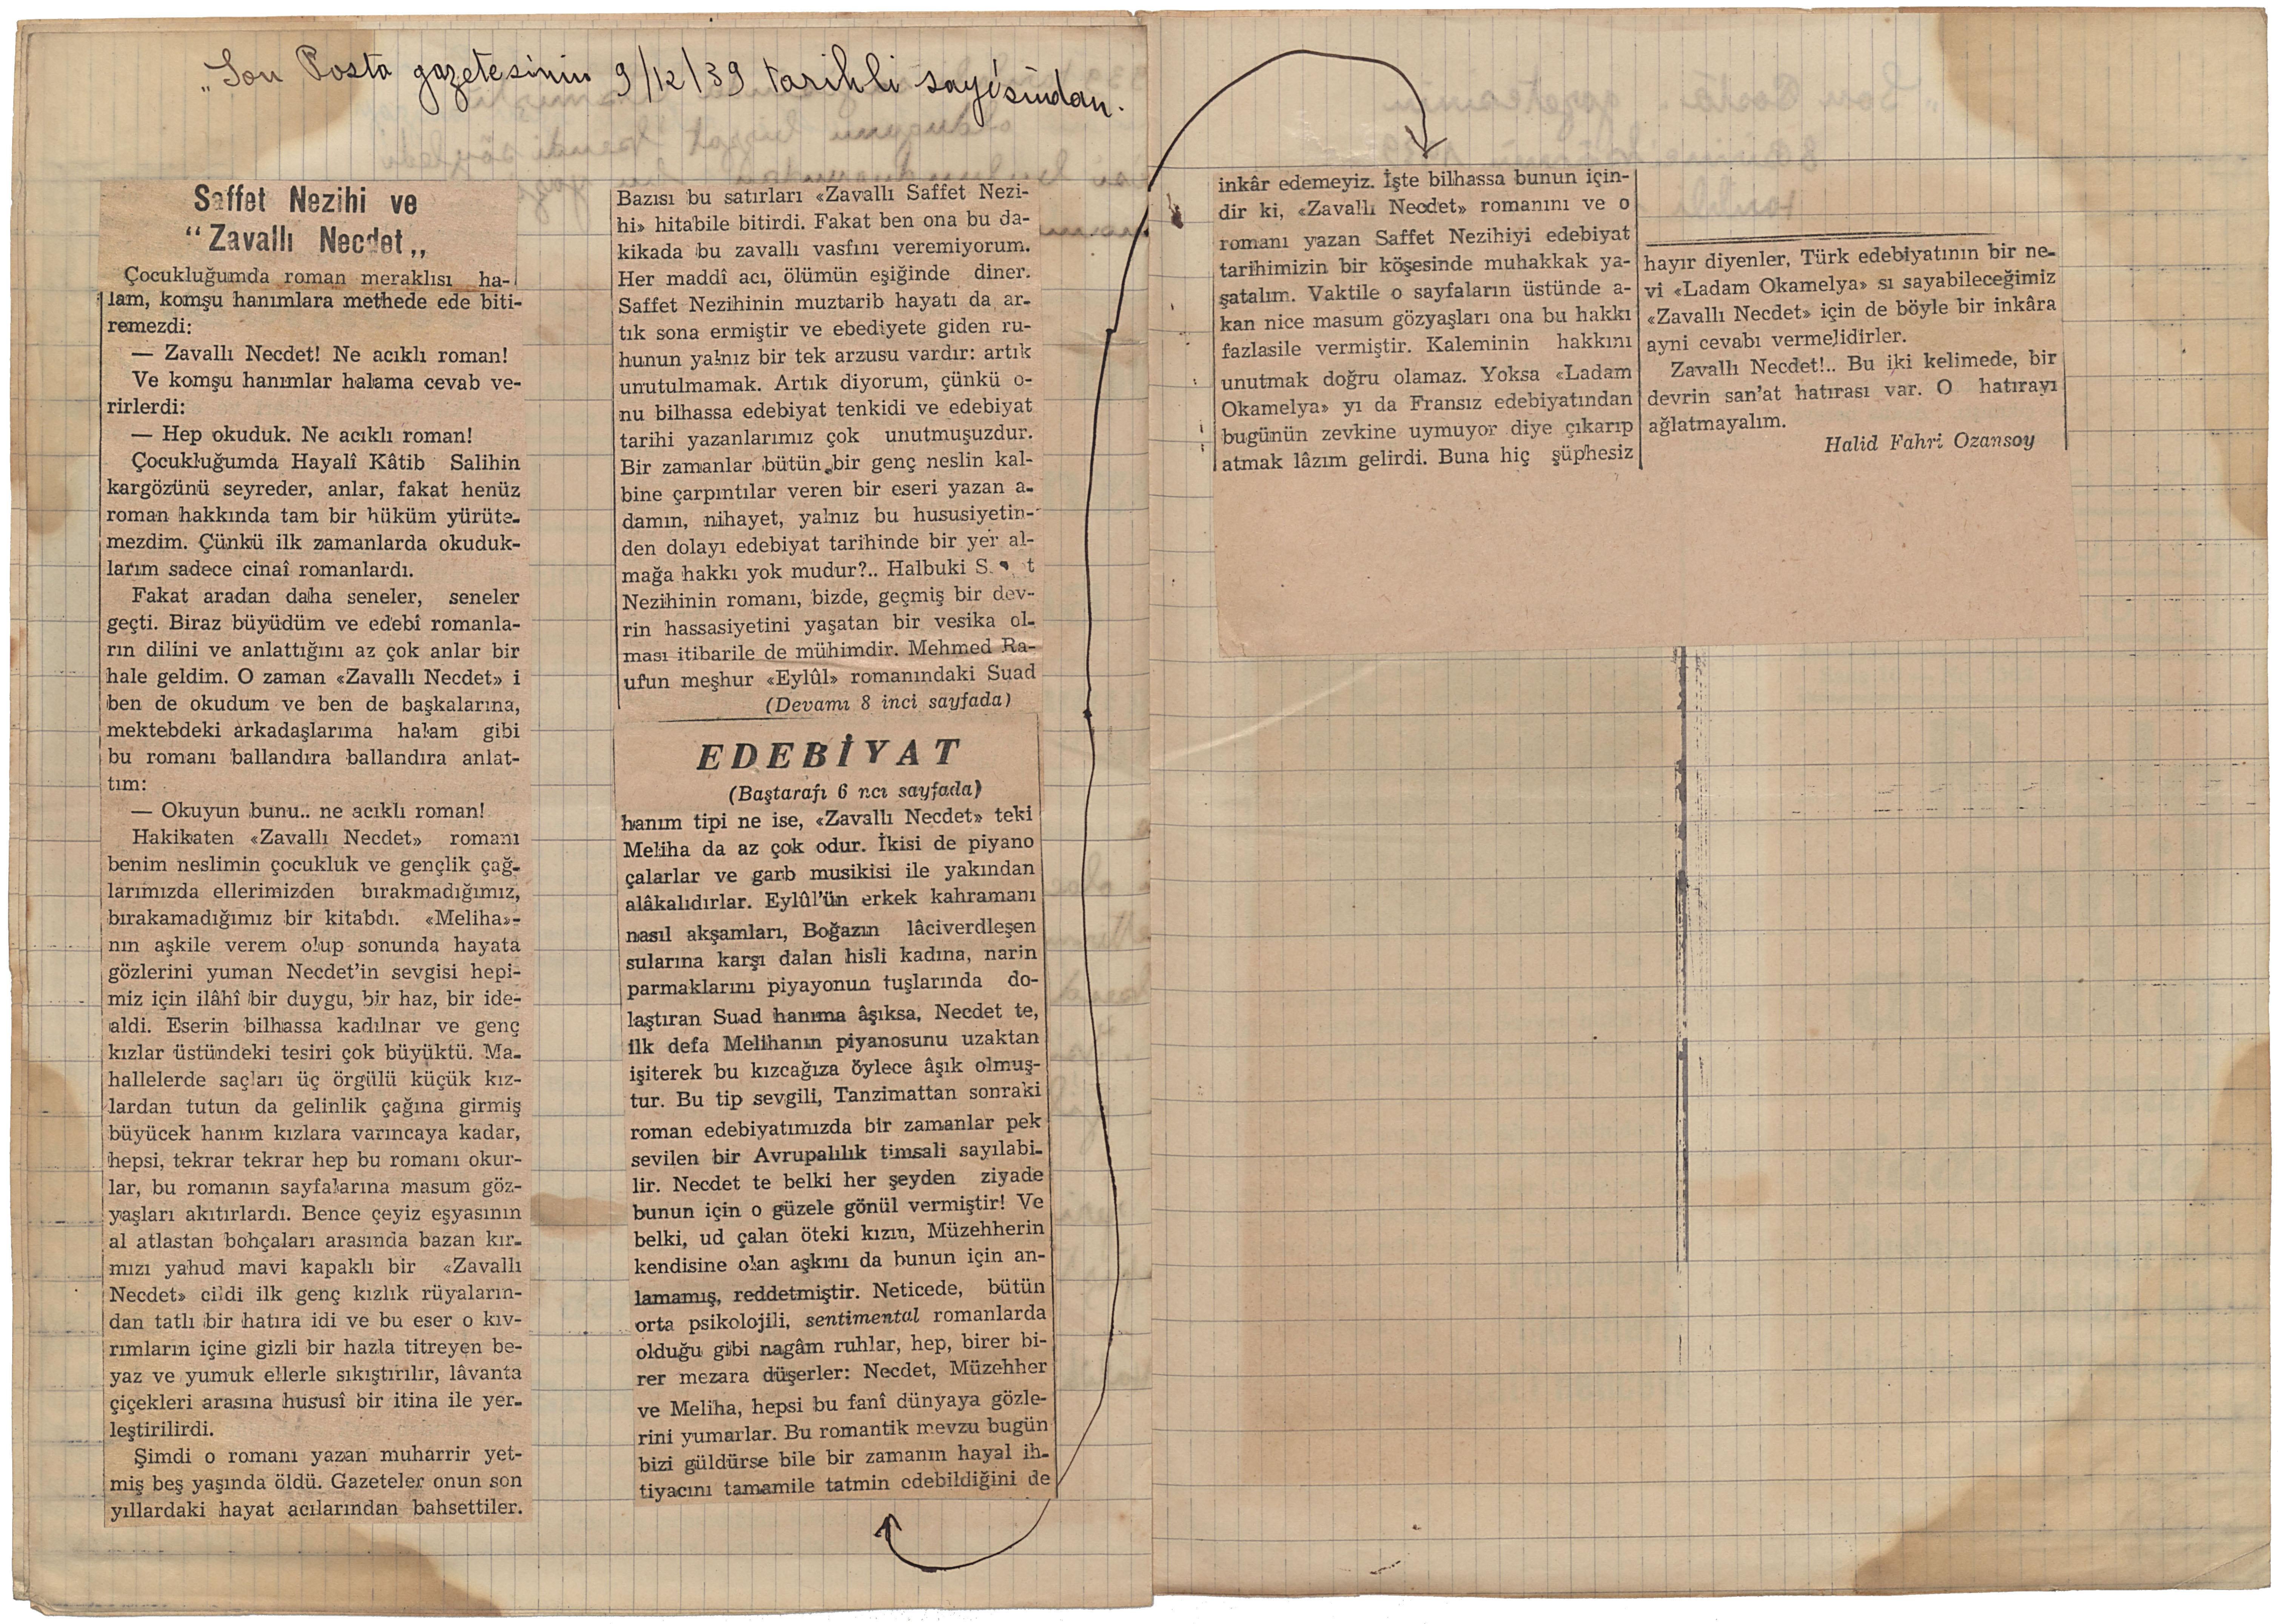 „Son Posta gazetesinin 9/12/39 tarihli sayısından.
Saffet Nezihi ve
“Zavallı Necdet„
Çocukluğumda roman meraklısı ha-
lam, komşu hanımlara methede ede biti-
remezdi:
— Zavallı Necdet! Ne acıklı roman!
Ve komşu hanımlar halama cevab ve-
rirlerdi:
— Hep okuduk. Ne acıklı roman!
Çocukluğumda Hayalî Kâtib Salihin
kargözünü seyreder, anlar, fakat henüz
roman hakkında tam bir hüküm yürüte-
mezdim. Çünkü ilk zamanlarda okuduk-
larım sadece cinaî romanlardı.
Fakat aradan daha seneler, seneler
geçti. Biraz büyüdüm ve edebî romanla-
rın dilini ve anlattığını az çok anlar bir
hale geldim. O zaman «Zavallı Necdet» i
ben de okudum ve ben de başkalarına,
mektebdeki arkadaşlarıma halam gibi
bu romanı ballandıra ballandıra anlat-
tım:
— Okuyun bunu.. ne acıklı roman!
Hakikaten «Zavallı Necdet» romanı
benim neslimin çocukluk ve gençlik çağ-
larımızda ellerimizden bırakmadığımız,
bırakamadığımız bir kitabdı. «Meliha»-
nın aşkile verem olup sonunda hayata
gözlerini yuman Necdet'in sevgisi hepi-
miz için ilâhî bir duygu, bir haz, bir ide-
aldi. Eserin bilhassa kadılnar ve genç
kızlar üstündeki tesiri çok büyüktü. Ma-
hallelerde saçları üç örgülü küçük kız-
lardan tutun da gelinlik çağına girmiş
büyücek hanım kızlara varıncaya kadar,
hepsi, tekrar tekrar hep bu romanı okur-
lar, bu romanın sayfalarına masum göz-
yaşları akıtırlardı. Bence çeyiz eşyasının
al atlastan bohçaları arasında bazan kır-
mızı yahud mavi kapaklı bir «Zavallı
Necdet» cildi ilk genç kızlık rüyaların-
dan tatlı bir hatıra idi ve bu eser o kıv-
rımların içine gizli bir hazla titreyen be-
yaz ve yumuk ellerle sıkıştırılır, lâvanta
çiçekleri arasına hususî bir itina ile yer-
leştirilirdi.
Şimdi o romanı yazan muharrir yet-
miş beş yaşında öldü. Gazeteler onun son
yıllardaki hayat acılarından bahsettiler.
Bazısı bu satırları «Zavallı Saffet Nezi-
hi» hitabile bitirdi. Fakat ben ona bu da-
kikada bu zavallı vasfını veremiyorum.
Her maddî acı, ölümün eşiğinde diner.
Saffet Nezihinin muztarib hayatı da ar-
tık sona ermiştir ve ebediyete giden ru-
hunun yalnız bir tek arzusu vardır: artık
unutulmamak. Artık diyorum, çünkü o-
nu bilhassa edebiyat tenkidi ve edebiyat
tarihi yazanlarımız çok unutmuşuzdur.
Bir zamanlar bütün bir genç neslin kal-
bine çarpıntılar veren bir eseri yazan a-
damın, nihayet, yalnız bu hususiyetin-
den dolayı edebiyat tarihinde bir yer al-
mağa hakkı yok mudur?.. Halbuki S t
Nezihinin romanı, bizde, geçmiş bir dev-
rin hassasiyetini yaşatan bir vesika ol-
ması itibarile de mühimdir. Mehmed Ra-
ufun meşhur «Eylûl» romanındaki Suad
(Devamı 8 inci sayfada)
EDEBİYAT
(Baştarafı 6 ncı sayfada)
hanım tipi ne ise, «Zavallı Necdet» teki
Meliha da az çok odur. İkisi de piyano
çalarlar ve garb musikisi ile yakından
alâkalıdırlar. Eylûl'ün erkek kahramanı
nasıl akşamları, Boğazın lâciverdleşen
sularına karşı dalan hisli kadına, narin
parmaklarını piyayonun tuşlarında do-
laştıran Suad hanıma âşıksa, Necdet te,
ilk defa Melihanın piyanosunu uzaktan
işiterek bu kızcağıza öylece âşık olmuş-
tur. Bu tip sevgili, Tanzimattan sonraki
roman edebiyatımızda bir zamanlar pek
sevilen bir Avrupalılık timsali sayılabi-
lir. Necdet te belki her şeyden ziyade
bunun için o güzele gönül vermiştir! Ve
belki, ud çalan öteki kızın, Müzehherin
kendisine olan aşkını da bunun için an-
lamamış, reddetmiştir. Neticede, bütün
orta psikolojili, sentimental romanlarda
olduğu gibi nagâm ruhlar, hep, birer bi-
rer mezara düşerler: Necdet, Müzehher
ve Meliha, hepsi bu fanî dünyaya gözle-
rini yumarlar. Bu romantik mevzu bugün
bizi güldürse bile bir zamanın hayal ih-
tiyacını tamamile tatmin edebildiğini de
inkâr edemeyiz. İşte bilhassa bunun için-
dir ki, «Zavallı Necdet» romanını ve o
romanı yazan Saffet Nezihiyi edebiyat
tarihimizin bir köşesinde muhakkak ya-
şatalım. Vaktile o sayfaların üstünde a-
kan nice masum gözyaşları ona bu hakkı
fazlasile vermiştir. Kaleminin hakkını
unutmak doğru olamaz. Yoksa «Ladam
Okamelya» yı da Fransız edebiyatından
bugünün zevkine uymuyor diye çıkarıp
atmak lâzım gelirdi. Buna hiç şüphesiz
hayır diyenler, Türk edebiyatının bir ne-
vi «Ladam Okamelya» sı sayabileceğimiz
«Zavallı Necdet» için de böyle bir inkâra
ayni cevabı vermelidirler.
Zavallı Necdet!.. Bu iki kelimede, bir
devrin san'at hatırası var. O hatırayı
ağlatmayalım.
Halid Fahri Ozansoy